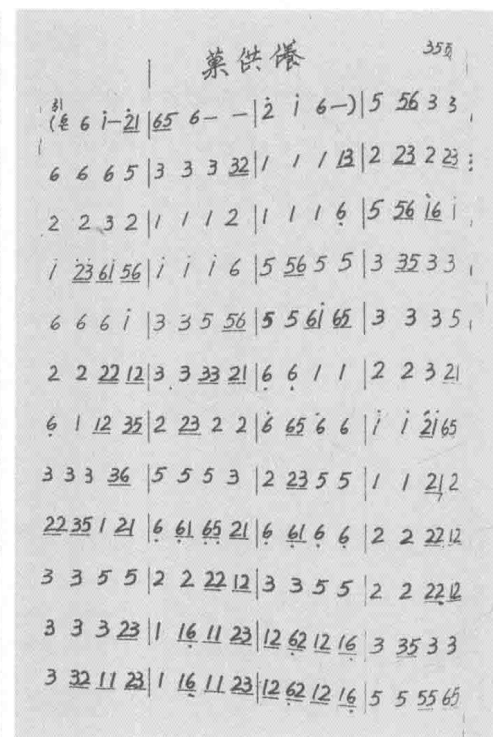 菓供養
35頁
引
(笙 6 i̇-2̇1̇|65 6 - -|2̇ i̇ 6-)|5 56 3 3
6 6 6 5|3 3 3 32|1 1 1 13|2 23 2 23
2 2 3 2|1 1 1 2|1 1 1 6̣|5 56 i̇6 i̇
i̇ 2̇3̇ 6i̇ 56|i̇ i̇ i̇ 6|5 56 5 5|3 35 3 3
6 6 6 i̇|3 3 5 56|5 5 6i̇ 65|3 3 3 5
2 2 22 12|3 3 33 21|6̣ 6̣ 1 1|2 2 3 21
6̣ 1 12 35|2 23 2 2|6 65 6 6|i̇ i̇ 2̇i̇ 65
3 3 3 36|5 5 5 3|2 23 5 5|1 1 21 2
22 35 1 21|6̣ 6̣1 6̣5̣ 21|6̣ 6̣1 6̣ 6̣|2 2 22 12
3 3 5 5|2 2 22 12|3 3 5 5|2 2 22 12
3 3 3 23|1 16̣ 11 23|12 6̣2 12 16̣|3 35 3 3
3 32 11 23|1 16̣ 11 23|12 6̣2 12 16̣|5 5 55 65